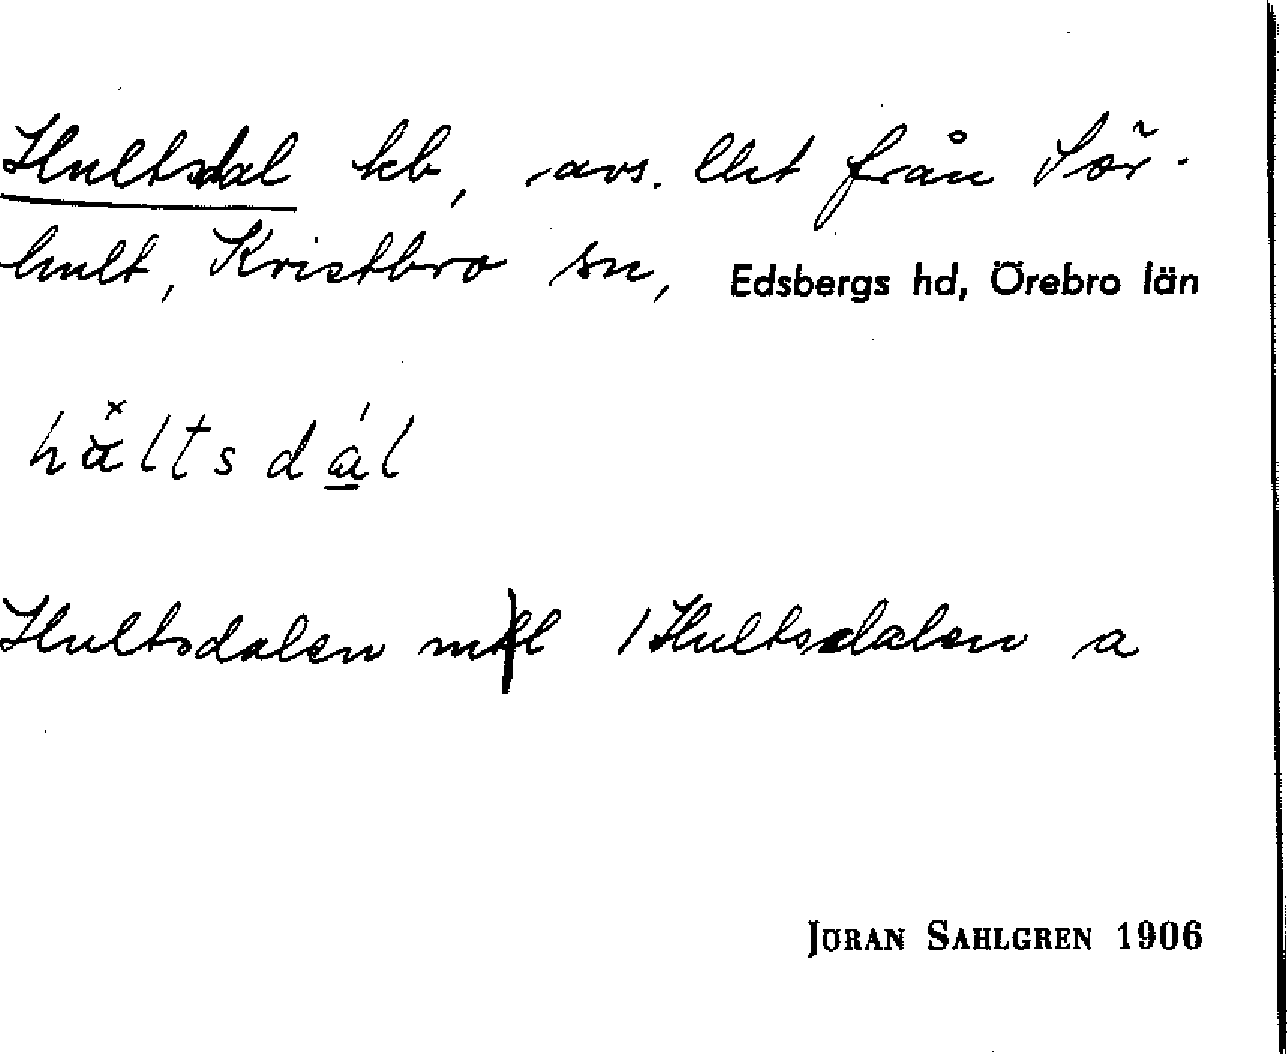 Hultsdal tib, avs. lht från Sör-
hult, Kvistbro sn, Edsbergs hd, Örebro län
hältsdál
Hultsdalen mtl / Hultsdalen a
JÖRAN SAHLGREN 1906